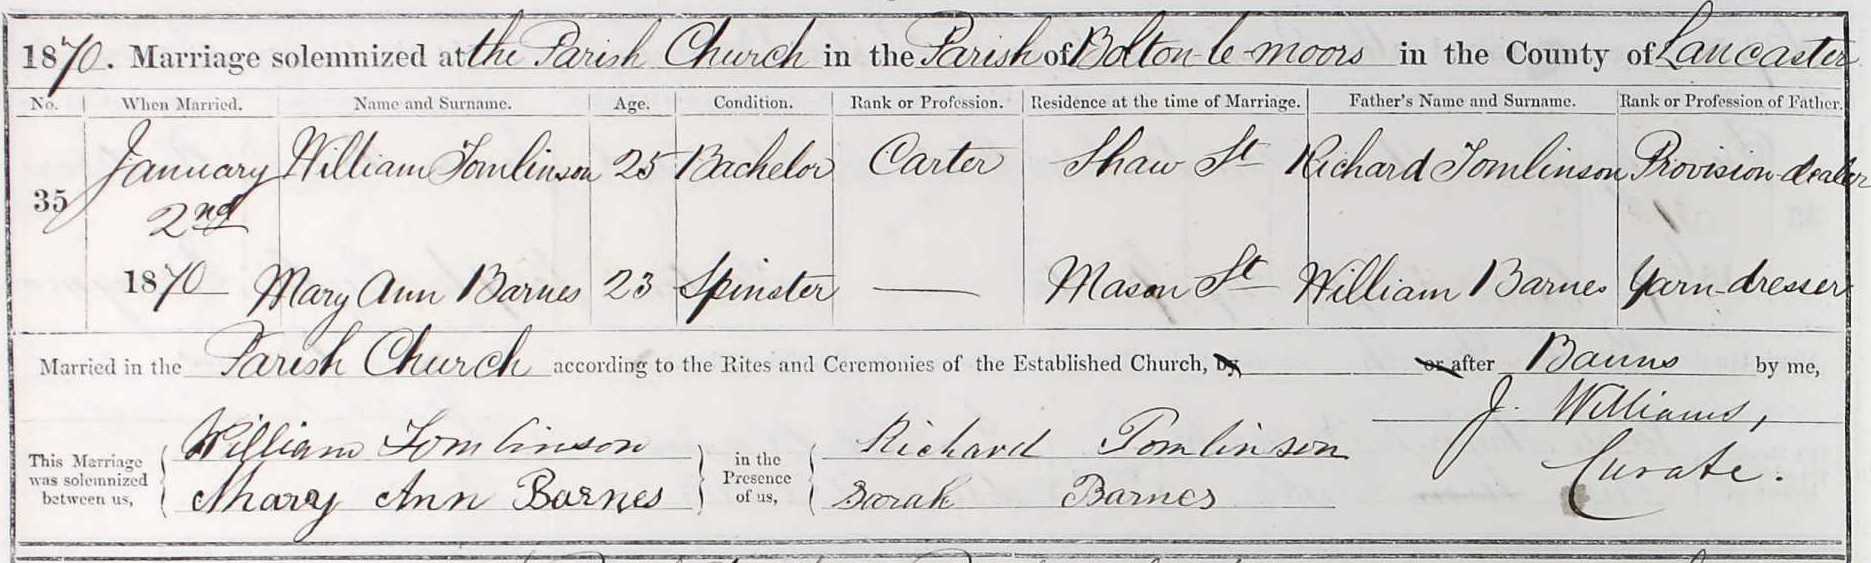 1870. Marriage solemnized at the Parish Church in the Parish of Bolton-le-moors in the County of Lancaster
No. When Married. Name and Surname. Age. Condition. Rank or Profession. Residence at the time of Marriage. Father's Name and Surname. Rank or Profession of Father.
35 January William Tomlinson 25 Bachelor Carter Shaw St Richard Tomlinson Provision-dealer
2nd
1870 Mary Ann Barnes 23 Spinster — Mason St William Barnes Yarn-dresser
Married in the Parish Church according to the Rites and Ceremonies of the Established Church, by or after Banns by me,
J. Williams,
Curate.
This Marriage was solemnized between us, William Tomlinson in the Presence of us, Richard Tomlinson
Mary Ann Barnes Sarah Barnes